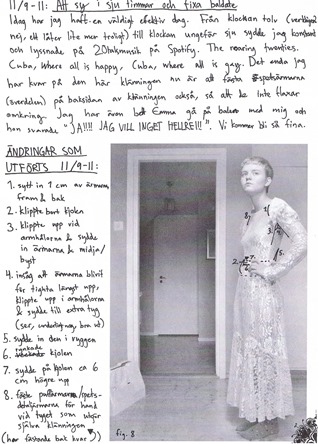 11/9-11: Att sy i sju timmar och fixa baldate
Idag har jag haft en väldigt effektiv dag. Från klockan tolv (vertigo?
nej, ett låter lite mer troligt) till klockan ungefär sju sydde jag konstant
och lyssnade på 20talsmusik på Spotify. The roaring twenties.
Cuba, where all is happy. Cuba, where all is gay. Det enda jag
har kvar på den här klänningen nu är att fästa spetsärmarna
(överdelen) på baksidan av klänningen också, så att de inte flaxar
omkring. Jag har även bett Emma gå på balen med mig och
hon svarade "JA!!!! JAG VILL INGET HELLRE!!". Vi kommer bli så fina.
ÄNDRINGAR SOM
UTFÖRTS 11/9-11:
1. sytt in 1 cm av ärmarna
fram & bak
2. klippte bort kjolen
3. klippte upp vid
armhålorna & sydde
in ärmarna & midja/
byst
4. insåg att ärmarna blivit
för tighta längst upp,
klippte upp i armhålorna
& sydde till extra tyg
(ser, underligt nog, bra ut)
5. sydde in den i ryggen
6. rynkade kjolen
7. sydde på kjolen ca 6
cm högre upp
8. fäste /spets-
för hand
vid tyget som utgör
själva klänningen
(har fästande bak kvar)
2.
3.
5.
fig. 8